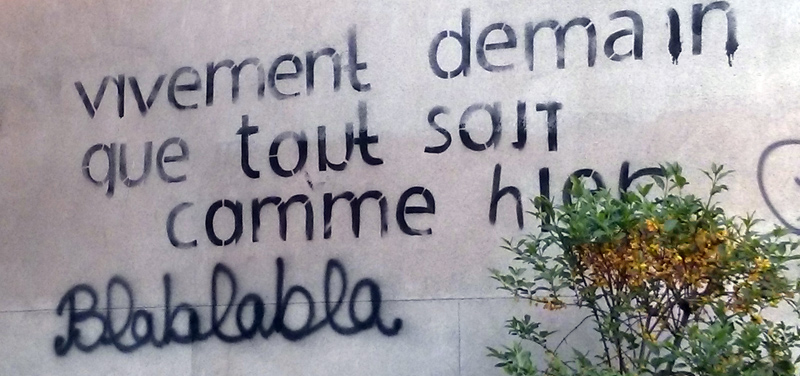 vivement demain
que tout soit
comme hier
Blablabla